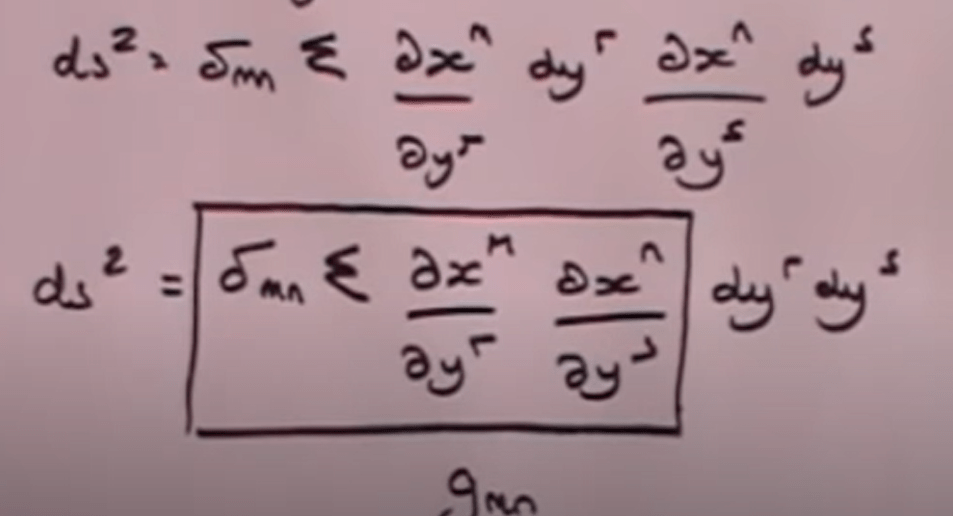 ds² = δₘₙ Σ ∂xⁿ/∂yʳ dyʳ ∂xⁿ/∂yˢ dyˢ
ds² = δₘₙ Σ ∂xᵐ/∂yʳ ∂xⁿ/∂yˢ dyʳ dyˢ
gₘₙ